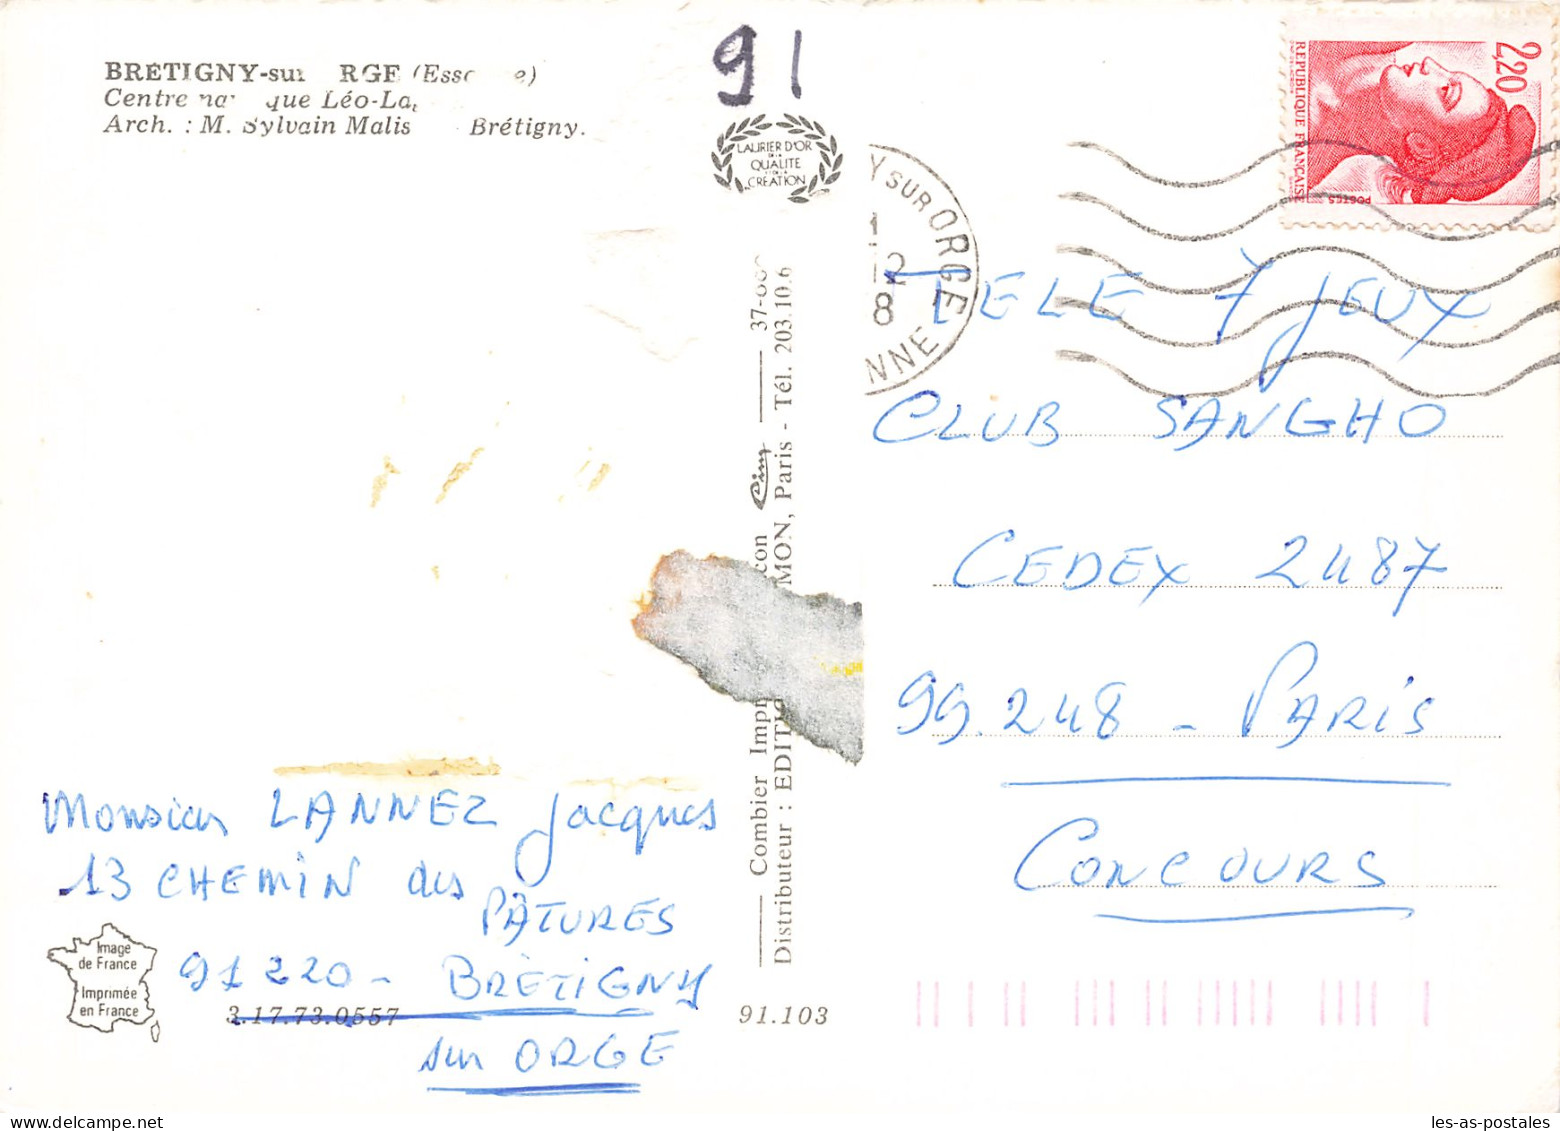 BRETIGNY-sur RGE (Esso e)
Centre na que Léo-La
Arch. : M. Sylvain Malis Brétigny.
91
LAURIER D'OR
DE LA
QUALITÉ
CRÉATION
Y SUR ORGE
1
12
8
NNE
2,20
REPUBLIQUE FRANÇAISE
POSTES
TELE 7 JEUX
CLUB SANGHO
CEDEX 2487
99.248 - PARIS
CONCOURS
Combier Imp con Cim 37-
Distributeur : EDITIO MON, Paris - Tél. 203.10.6
Monsieur LANNEZ Jacques
13 CHEMIN des
PÂTURES
91220 - BRETIGNY
sur ORGE
Image
de France
Imprimée
en France
3.17.73.0557
91.103
les-as-postales